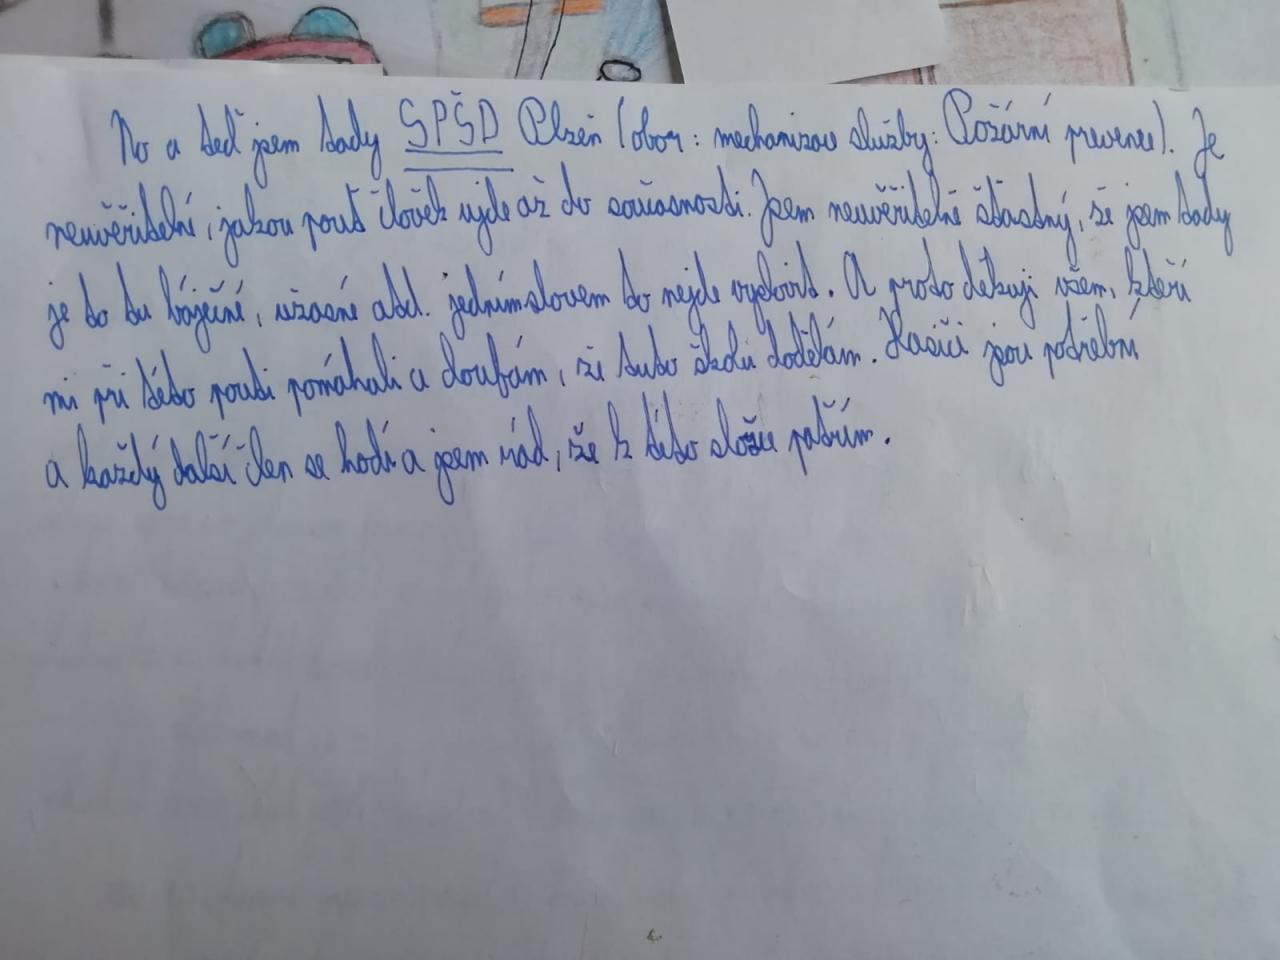 No a teď jsem tady SPŠD Plzeň (obor: mechanizace služby: Požární prevence). Je
neuvěřitelní, jakou pouť člověk ujde až do současnosti. Jsem neuvěřitelně šťastný, že jsem tady
je to tu báječné, úžasné atd. jedním slovem to nejde vyslovit. A proto děkuji všem, kteří
mi při této pouti pomáhali a doufám, že tuto školu dodělám. Hasiči jsou potřební
a každý další člen se hodí a jsem rád, že k této složce patřím.